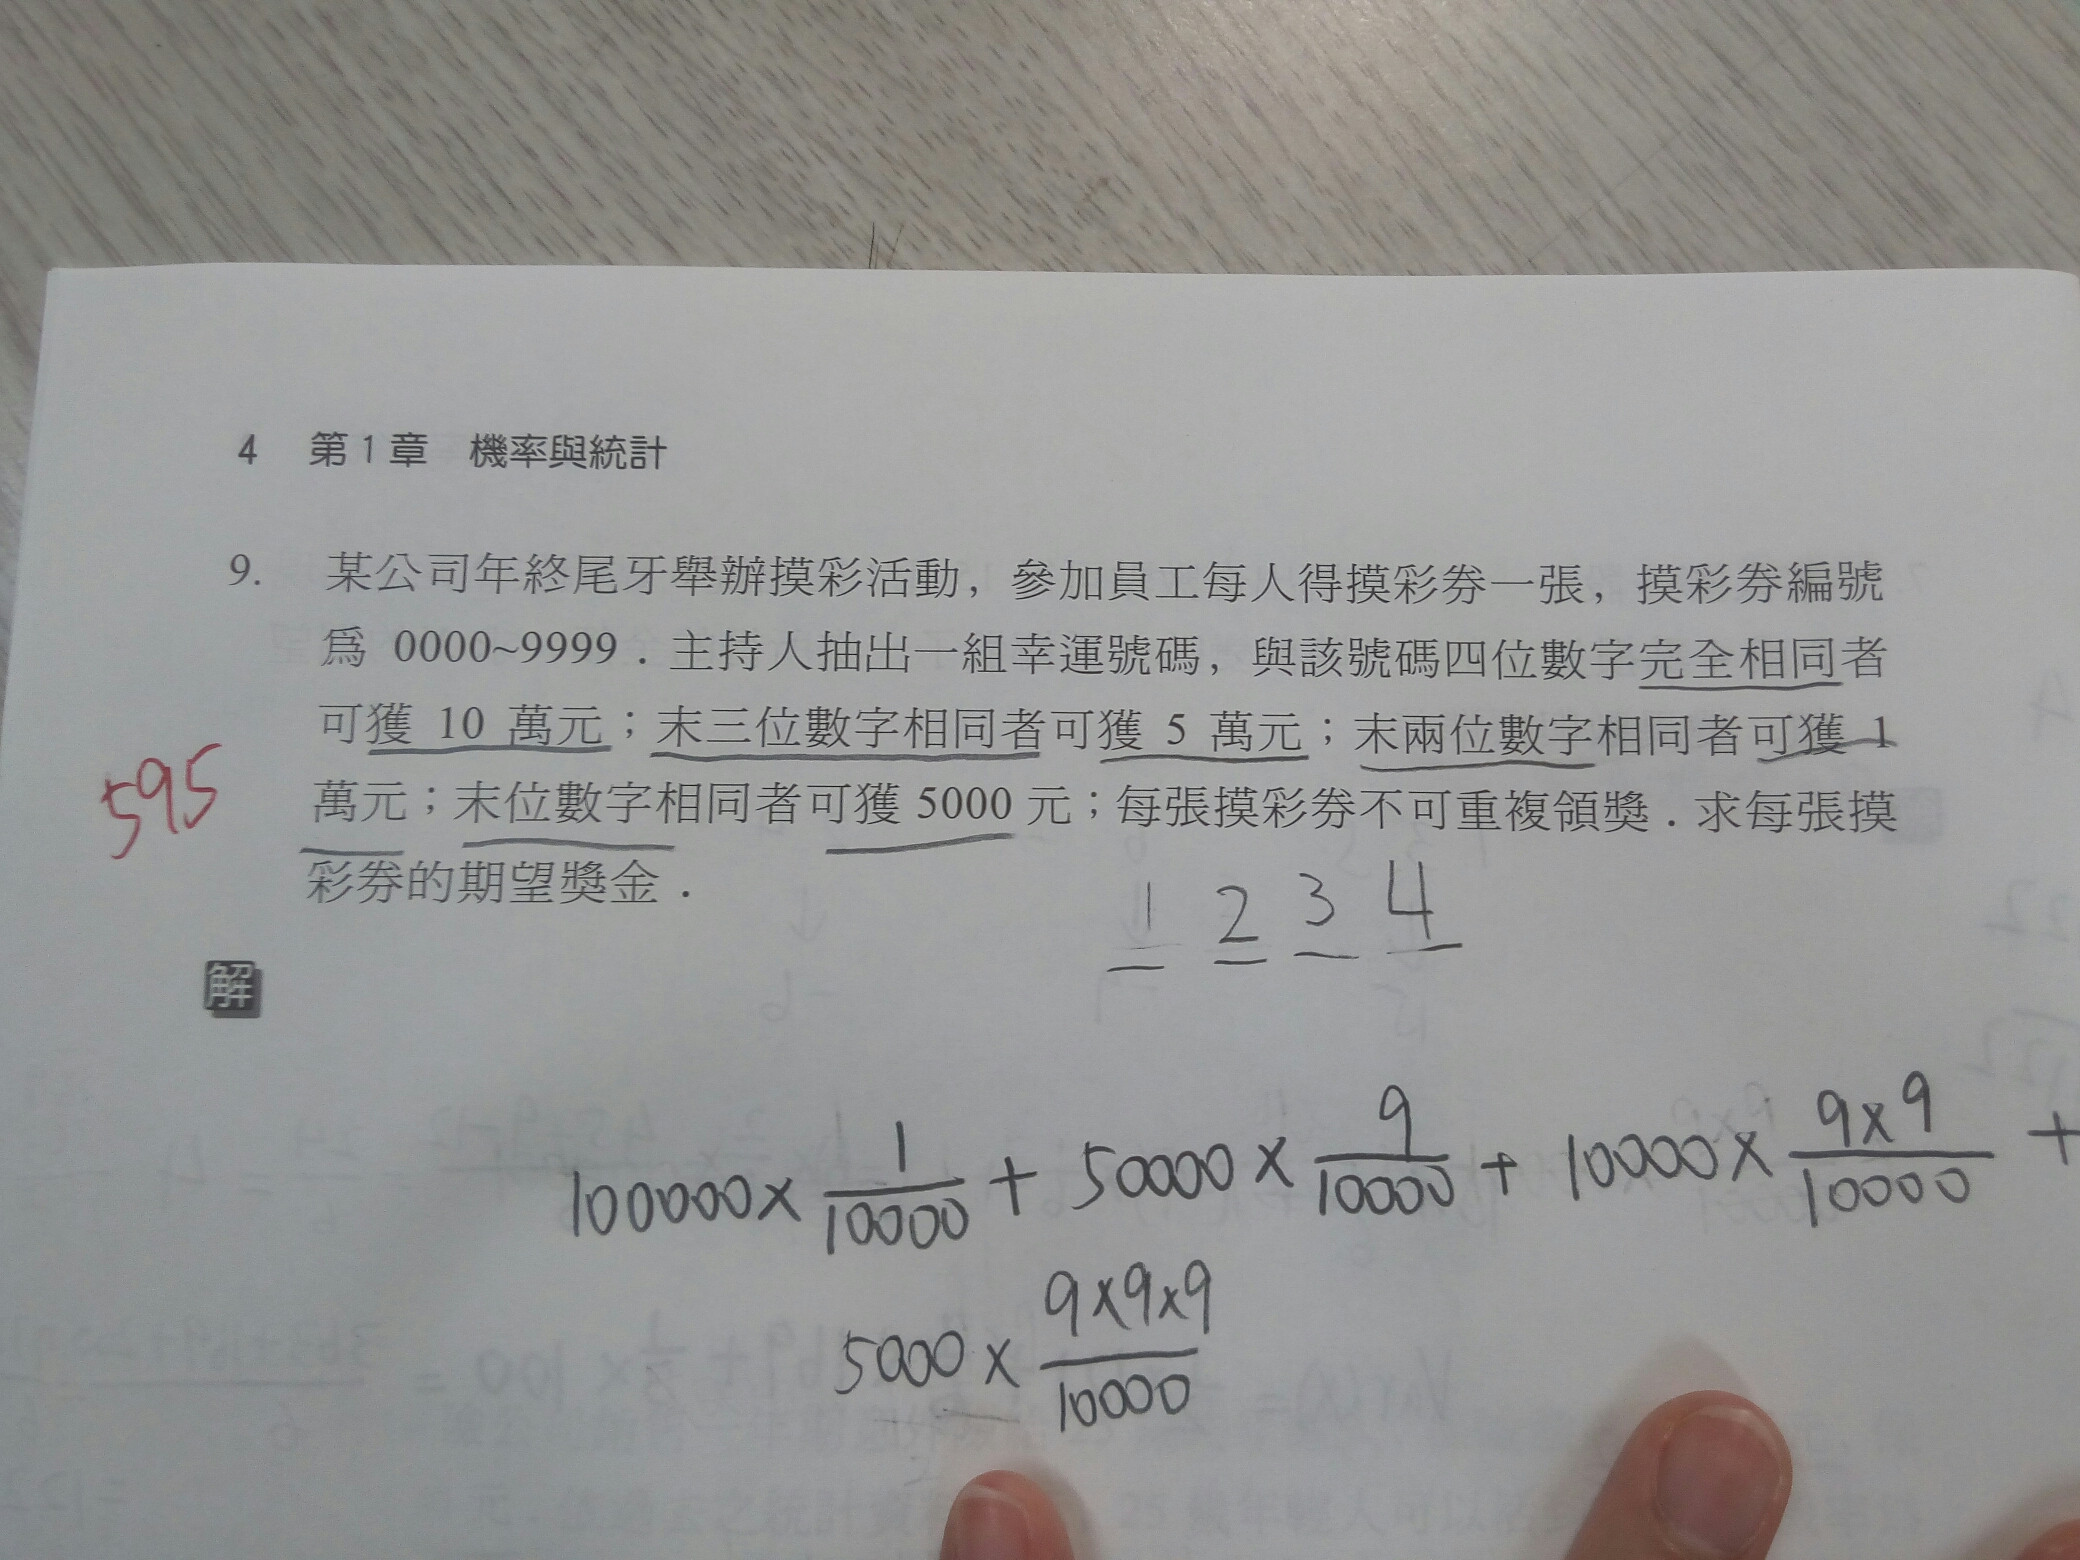 4 第1章 機率與統計
9. 某公司年終尾牙舉辦摸彩活動，參加員工每人得摸彩券一張，摸彩券編號
為 0000~9999．主持人抽出一組幸運號碼，與該號碼四位數字完全相同者
可獲 10 萬元；末三位數字相同者可獲 5 萬元；末兩位數字相同者可獲 1
595
萬元；末位數字相同者可獲 5000 元；每張摸彩券不可重複領獎．求每張摸
彩券的期望獎金．
1 2 3 4
解
100000 × 1/10000 + 50000 × 9/10000 + 10000 × 9×9/10000 +
5000 × 9×9×9/10000